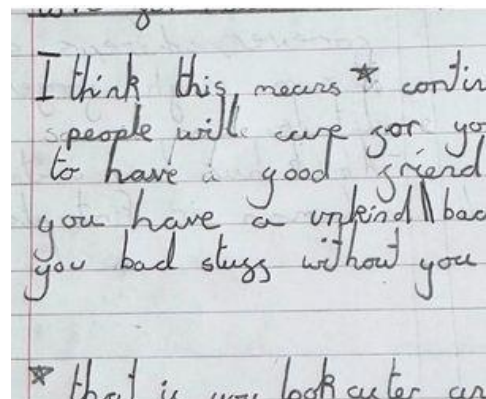 I think this means * contin
people will care for yo
to have a good friend
you have a unkind \\ bad
you bad stuff without you
* that if you look after an